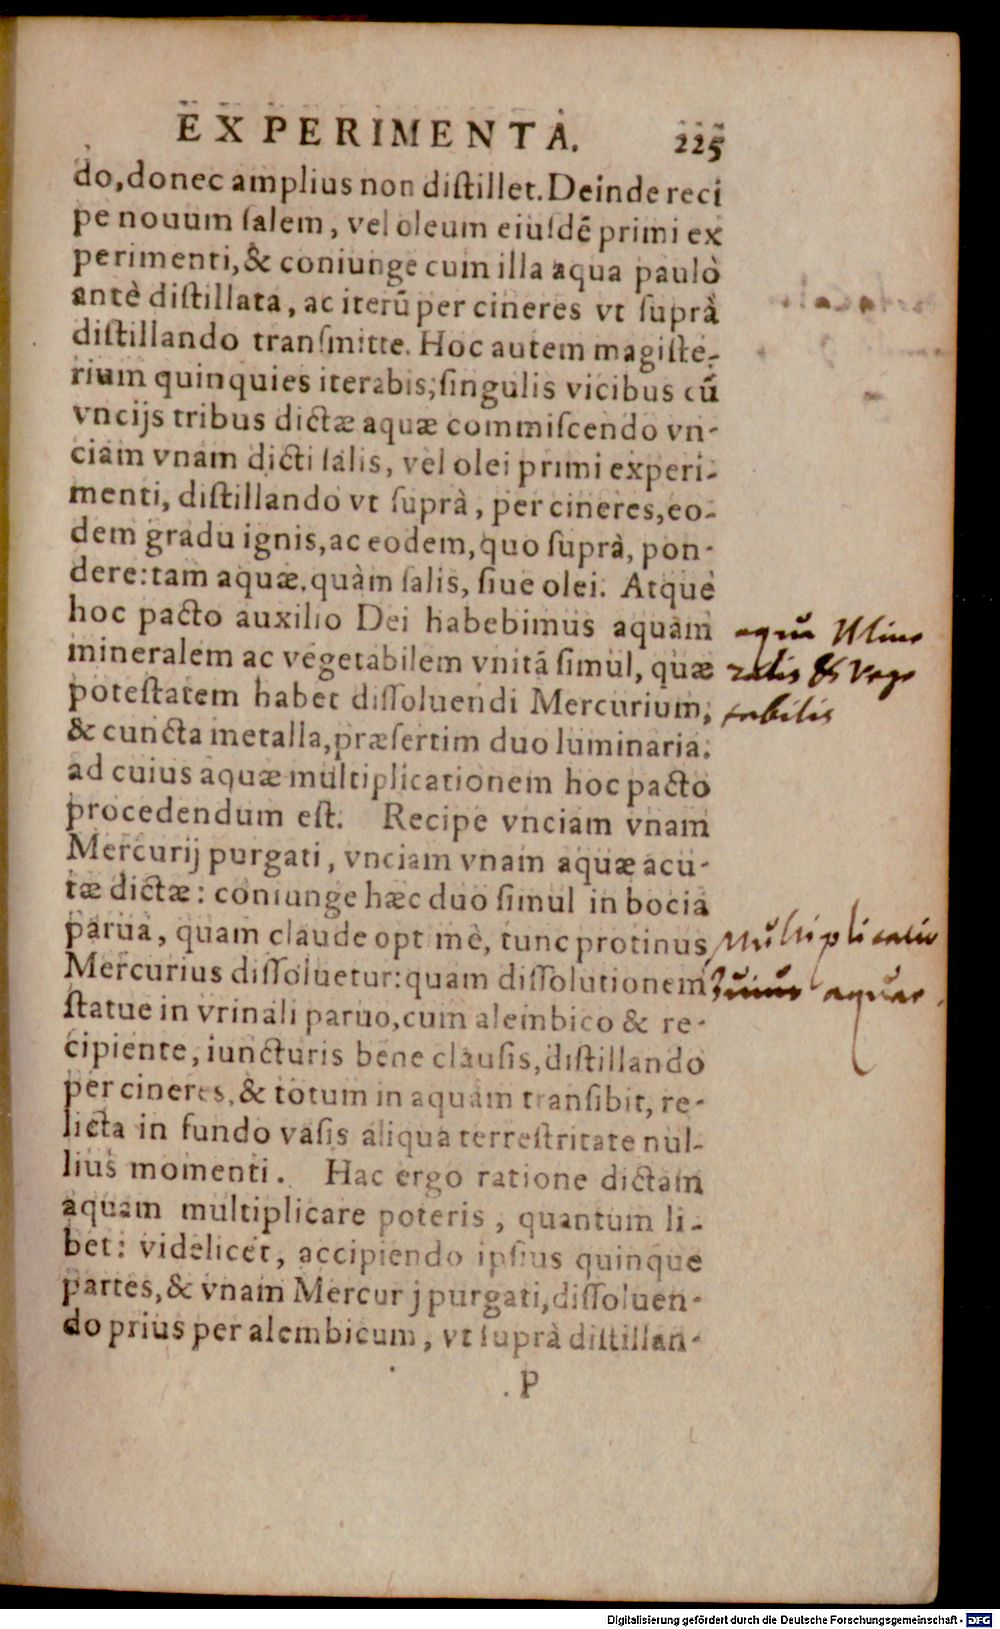 EXPERIMENTA. 225
do, donec amplius non distillet. Deinde reci
pe nouum salem, vel oleum eiusdē primi ex
perimenti, & coniunge cum illa aqua paulò
antè distillata, ac iterū per cineres vt suprà
distillando transmitte. Hoc autem magiste-
rium quinquies iterabis; singulis vicibus cū
vncijs tribus dictæ aquæ commiscendo vn-
ciam vnam dicti salis, vel olei primi experi-
menti, distillando vt suprà, per cineres, eo-
dem gradu ignis, ac eodem, quo suprà, pon-
dere: tam aquæ, quàm salis, siue olei. Atque
hoc pacto auxilio Dei habebimus aquam
mineralem ac vegetabilem vnitā simul, quæ
potestatem habet dissoluendi Mercurium,
& cuncta metalla, præsertim duo luminaria.
ad cuius aquæ multiplicationem hoc pacto
procedendum est. Recipe vnciam vnam
Mercurij purgati, vnciam vnam aquæ acu-
tæ dictæ: coniunge hæc duo simul in bocia
parua, quam claude optimè, tunc protinus
Mercurius dissoluetur: quam dissolutionem
statue in vrinali paruo, cum alembico & re-
cipiente, iuncturis bene clausis, distillando
per cineres, & totum in aquam transibit, re-
licta in fundo vasis aliqua terrestritate nul-
lius momenti. Hac ergo ratione dictam
aquam multiplicare poteris, quantum li-
bet: videlicet, accipiendo ipsius quinque
partes, & vnam Mercurij purgati, dissoluen-
do prius per alembicum, vt suprà distillan-
P
aqua Mine
ralis & Vege
tabilis
Multiplicatio
huius aquae
Digitalisierung gefördert durch die Deutsche Forschungsgemeinschaft - DFG